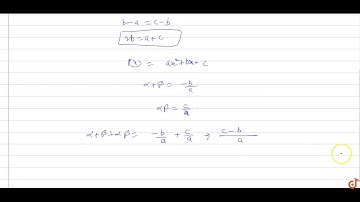 b-a = c-b
2b = a+c
P(x) = ax²+bx+c
α+β = -b/a
αβ = c/a
α+β+αβ = -b/a + c/a ⇒ c-b/a